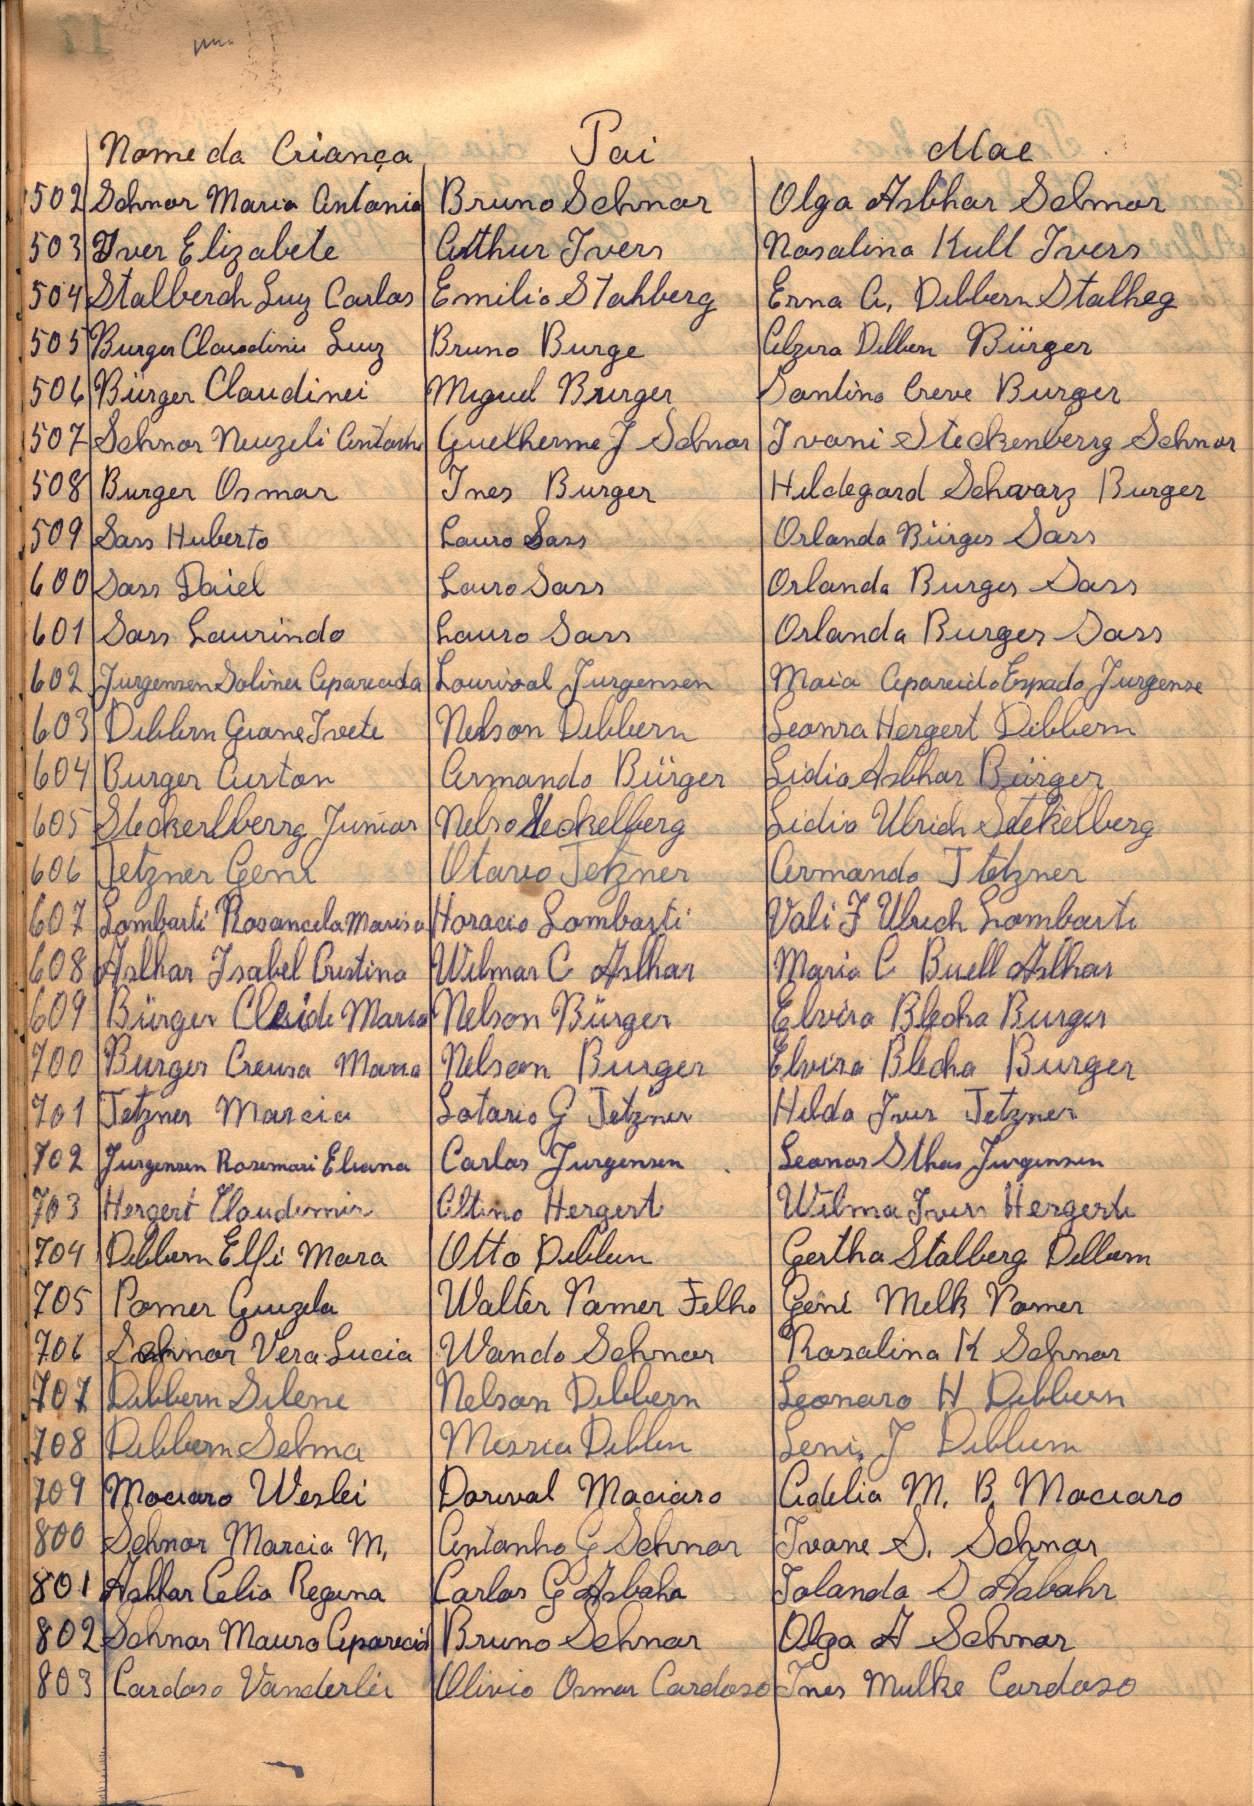 17
Nome da Criança Pai Mae
502 Schnor Maria Antonia Bruno Schnor Olga Asbhar Schnor
503 Iver Elizabete Arthur Ivers Rosalina Kull Ivers
504 Stalberch Luiz Carlos Emilio Stahberg Erna A. Dibbern Stalheg
505 Burger Claudinei Luiz Bruno Burge Alzira Dibbern Bürger
506 Bürger Claudinei Miguel Brurger Santina Creve Burger
507 Schnor Neuzeli Guelherme J Schnor Ivani Steckenberrg Schnor
508 Burger Osmar Ines Burger Hildegard Schwarz Burger
509 Sass Huberto Lauro Sass Orlanda Bürges Sass
600 Sass Daiel Lauro Sass Orlanda Burges Sass
601 Sass Laurindo Lauro Sass Orlanda Burges Sass
602 Jurgensen Solinei Aparecida Lourival Jurgensen Maia Apareido Espado Jurgense
603 Dibbern Giane Ivete Nelson Dibbern Leonra Hergert Dibbern
604 Burger Airton Armando Bürger Lidia Asbhar Bürger
605 Steckerlberrg Junior Nelso Steckelberg Lidia Ulrich Stekelberg
606 Jetzner Geni Otario Jetzner Armando Jtetzner
607 Lombarti Rosancela Marisa Horacio Lombarti Vali J Ulrich Lombarti
608 Aslhar Isabel Cristina Wilmar C Aslhar Maria C Buell Aslhar
609 Bürger Cleide Maria Nelson Bürger Elvira Blecha Burger
700 Burger Creusa Maria Nelson Burger Elvira Blecha Burger
701 Jetzner Marcia Lotario G Jetzner Hilda Iver Jetzner
702 Jurgensen Rosemari Eliana Carlos Jurgensen Leonor Sthas Jurgensen
703 Hergert Claudemir Altino Hergert Wilma Ivers Hergert
704 Dibbern Elfi Mara Otto Dibbern Gertha Stalberg Dibbern
705 Pomer Guizela Walter Pomer Felho Geni Melk Pomer
706 Schnor Vera Lucia Wando Schnor Rosalina K Schnor
707 Dibbern Silene Nelson Dibbern Leonaro H Dibbern
708 Dibbern Selma Dibbern Leni J Dibbern
709 Maciaro Weslei Dorival Maciaro Adelia M. B. Maciaro
800 Schnor Marcia M. Antonho G Schnor Ivone S. Schnor
801 Asbhar Celia Regina Carlos G Asbaha Iolanda S Asbahr
802 Schnor Mauro Aparecid Bruno Schnor Olga A Schnor
803 Cardoso Vanderlei Olivio Osmar Cardoso Ines Mulke Cardoso